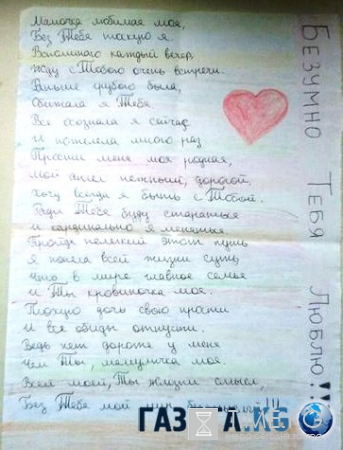 Мамочка любимая моя,
Без Тебя тоскую я.
Вспоминаю каждый вечер,
Жду с Тобою очень встречи.
Раньше грубою была,
Обижала я Тебя.
Все осознала я сейчас
и пожалела много раз
Прости меня моя родная,
Мой ангел нежный, дорогой,
Хочу всегда я быть с Тобой.
Ради Тебя буду стараться
и кардинально я меняться
Пройдя нелегкий этот путь
я поняла всей жизни суть
Что в мире главное семья
и Ты кровиночка моя.
Плохую дочь свою прости
и все обиды отпусти.
Ведь нет дороже у меня
Чем Ты, мамулечка моя.
Всей моей, Ты жизни смысл,
Без Тебя мой мир
БЕЗУМНО ТЕБЯ ЛЮБЛЮ!!!
ГАЗЕТА.KG